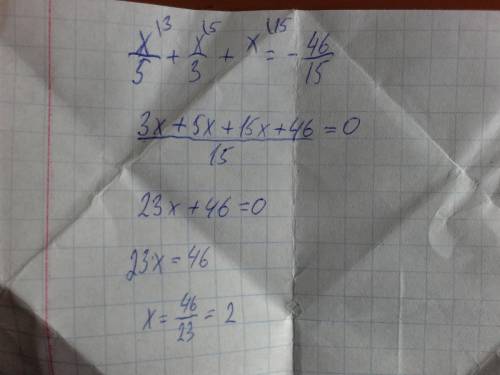 x/5 \3 + x/3 \5 + x \15 = - 46/15
(3x + 5x + 15x + 46)/15 = 0
23x + 46 = 0
23x = 46
x = 46/23 = 2